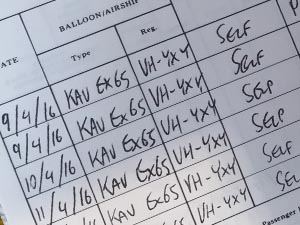 BALLOON/AIRSHIP
ATE Type Reg.
9/4/16 KAV EX65 VH-YXY SELF
9/4/16 KAV EX65 VH-YXY SELF
10/4/16 KAV EX65 VH-YXY SELF
11/4/16 KAV EX65 VH-YXY SELF
KAV EX65 VH-YXY SELF
Passenger